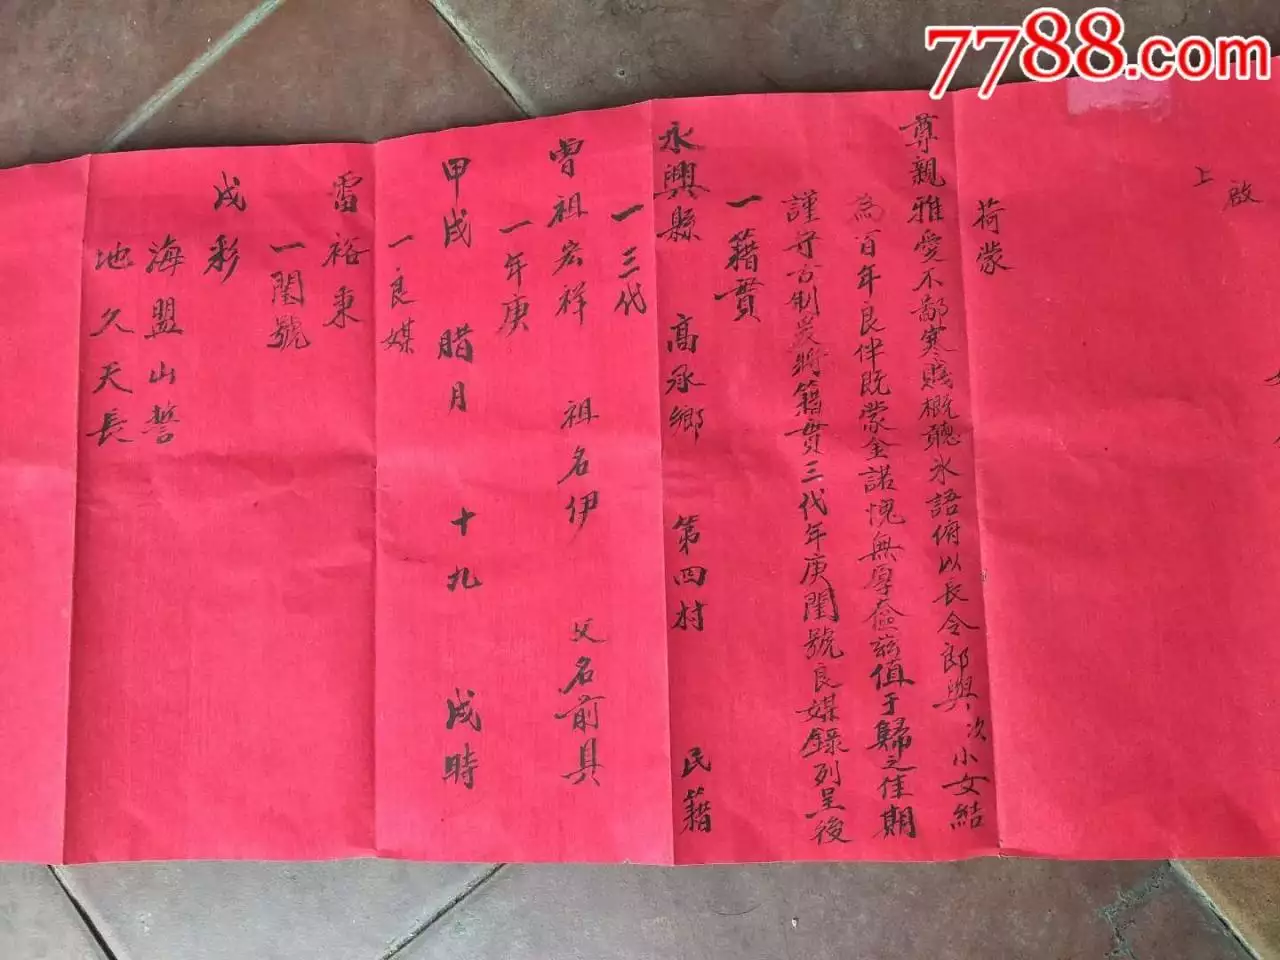 7788.com
上
啟
荷蒙
尊親雅愛不鄙寒賤概聽氷語俯以長令郎與次小女結
為百年良伴既蒙金諾愧無厚奩兹值于歸之佳期
謹守古制爰將籍貫三代年庚閨號良媒錄列呈後
一籍貫
永興縣 高承鄉 第四村 民籍
一三代
曾祖宏祥 祖名伊 父名前具
一年庚
甲戌 腊月 十九 戌時
一良媒
雷裕秉
一閨號
戊彩
海盟山誓
地久天長